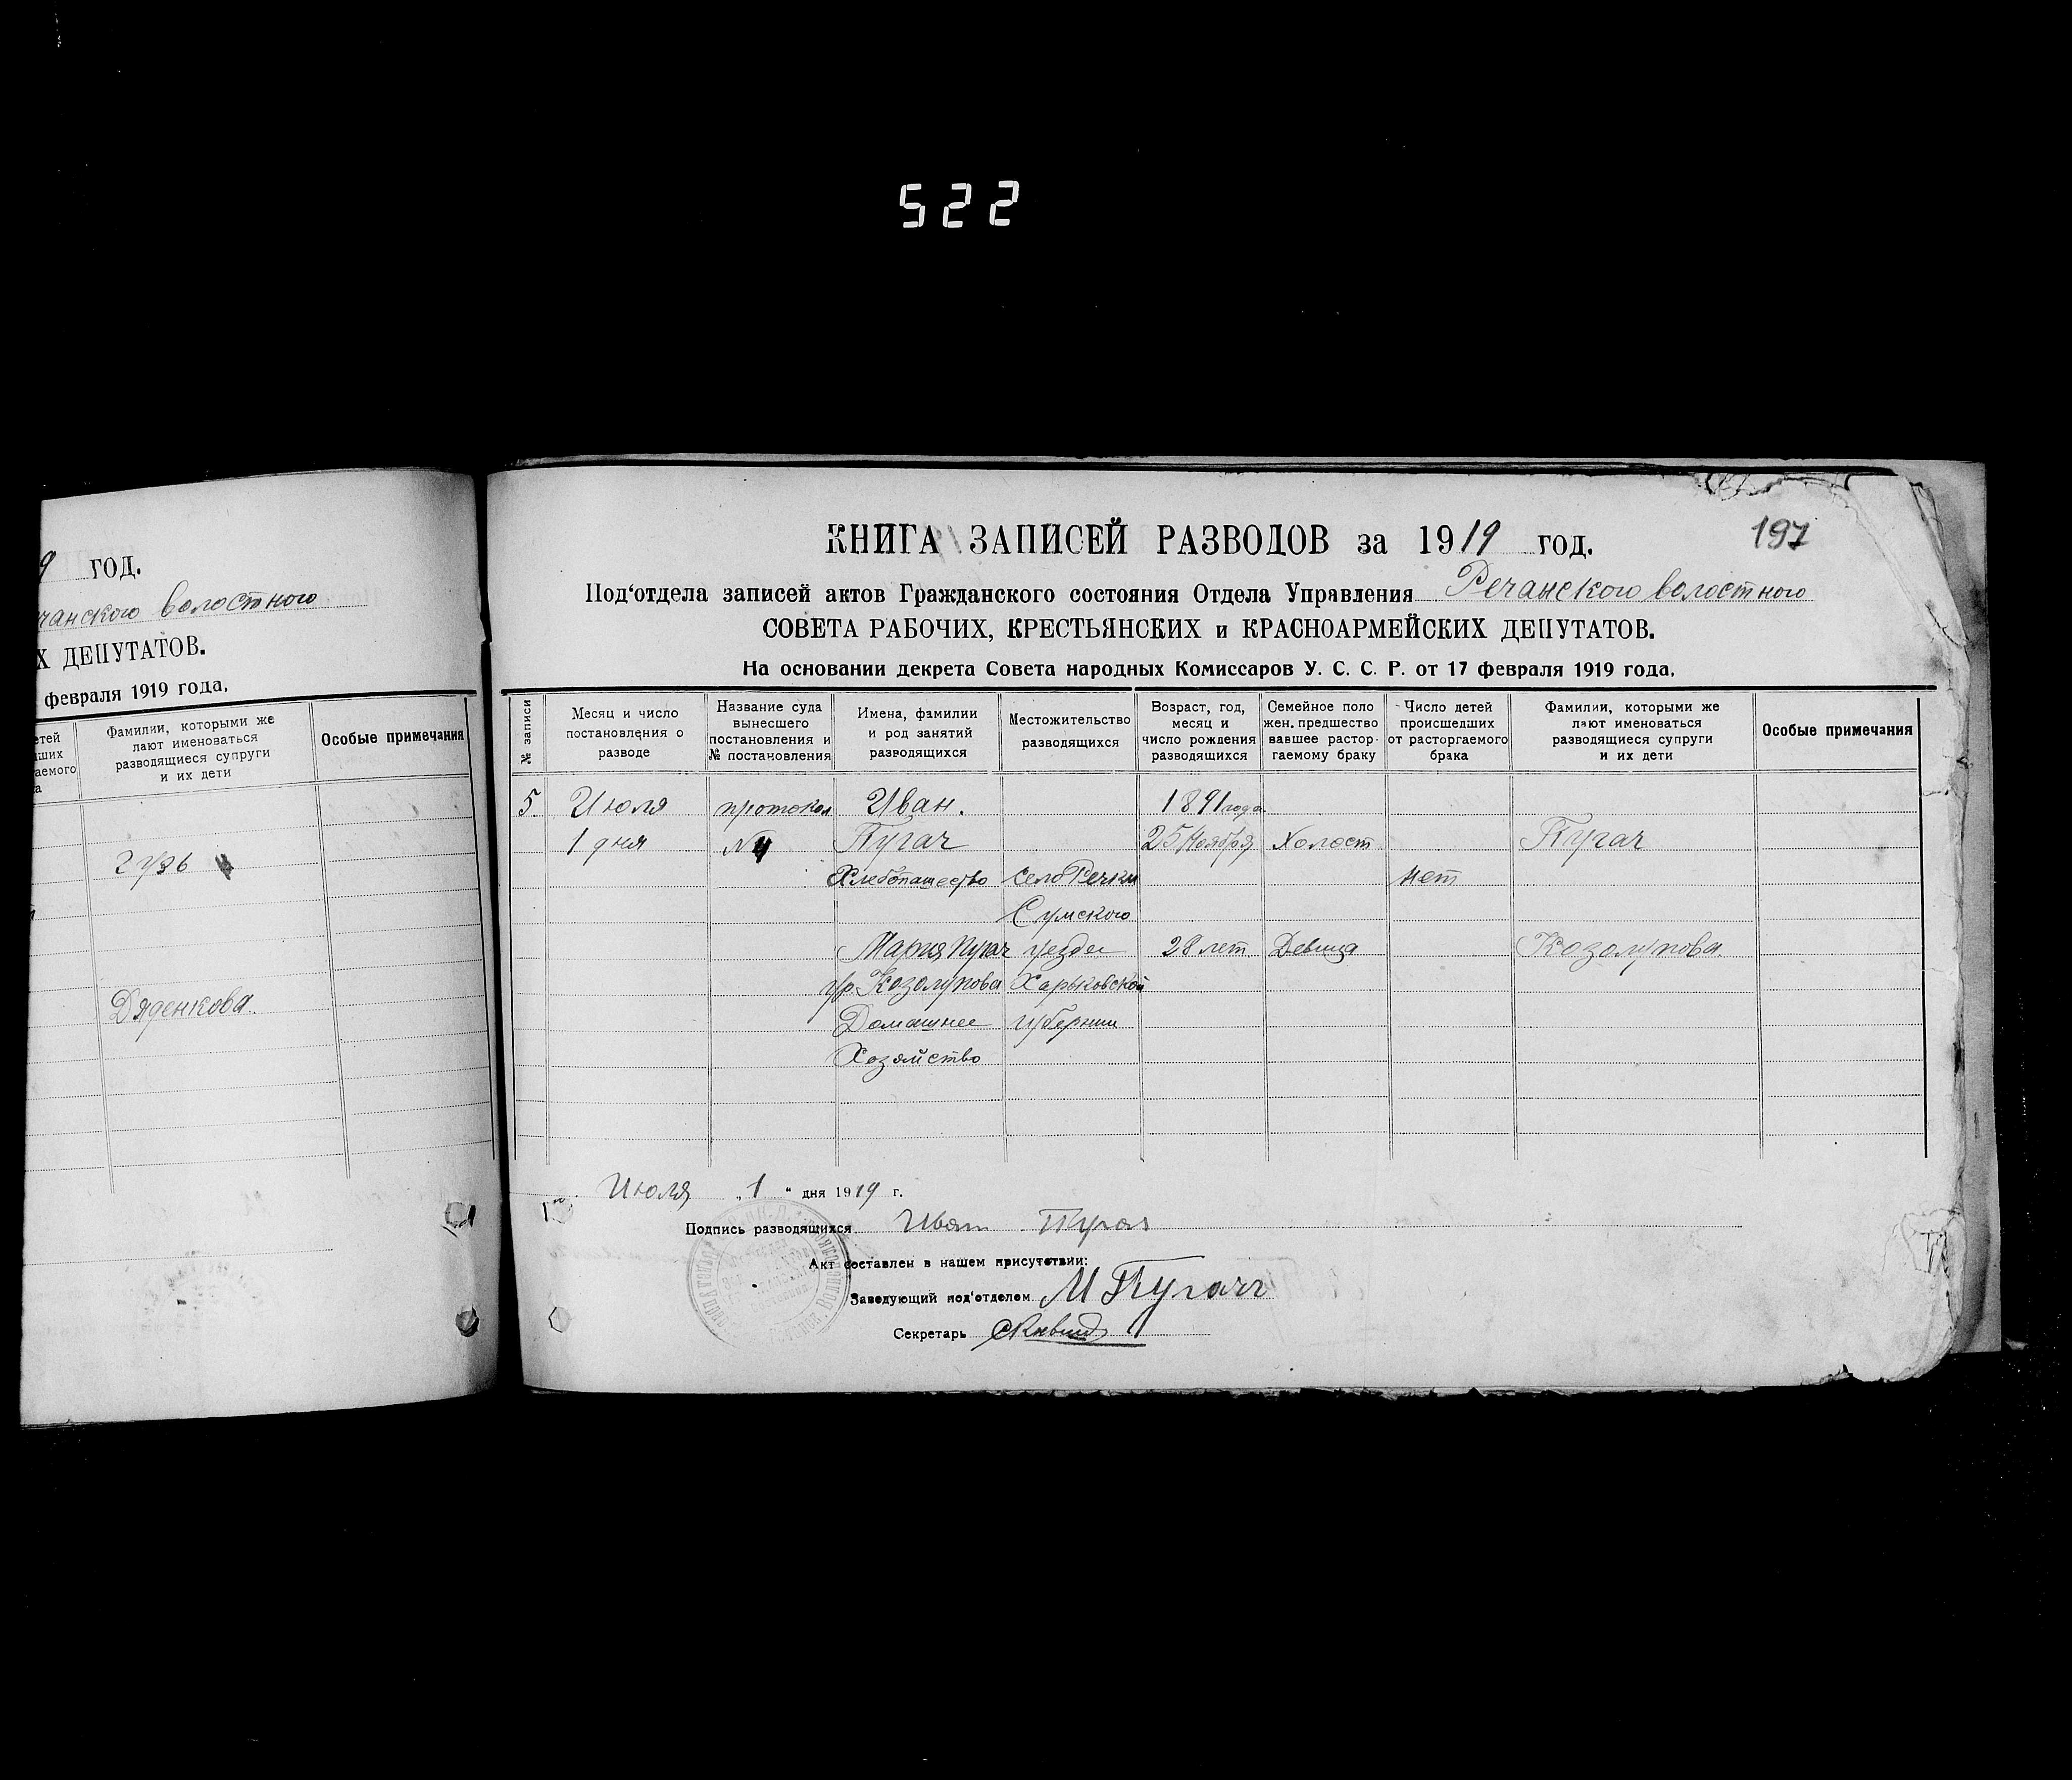 522
9 год.
чанского волостного
Х ДЕПУТАТОВ.
февраля 1919 года,
Фамилии, которыми же
лают именоваться
разводящиеся супруги
и их дети
Особые примечания
Гузь
Дяденкова.
197
КНИГА ЗАПИСЕЙ РАЗВОДОВ за 1919 год.
Под‘отдела записей актов Гражданского состояния Отдела Управления Речанского волостного
СОВЕТА РАБОЧИХ, КРЕСТЬЯНСКИХ и КРАСНОАРМЕЙСКИХ ДЕПУТАТОВ.
На основании декрета Совета народных Комиссаров У. С. С. Р. от 17 февраля 1919 года,
№ записи
Месяц и число
постановления о
разводе
Название суда
вынесшего
постановления и
№ постановления
Имена, фамилии
и род занятий
разводящихся
Местожительство
разводящихся
Возраст, год,
месяц и
число рождения
разводящихся
Семейное поло
жен. предшество
вавшее растор-
гаемому браку
Число детей
происшедших
от расторгаемого
брака
Фамилии, которыми же
лают именоваться
разводящиеся супруги
и их дети
Особые примечания
5. Июля протокол Иван. 1891 года
1 дня № 4 Пугач 25 Ноября Холост Пугач
Хлебопашество село Речки нет
Сумского
Мария Пугач уезда 28 лет Девица Козолупова.
ур. Козолупова Харьковской
Домашнее губернии
Хозяйство
Июля „1“ дня 1919 г.
Подпись разводящихся Иван Пугач
Акт составлен в нашем присутствии:
Заведующий под‘отделом М Пугач
Секретарь